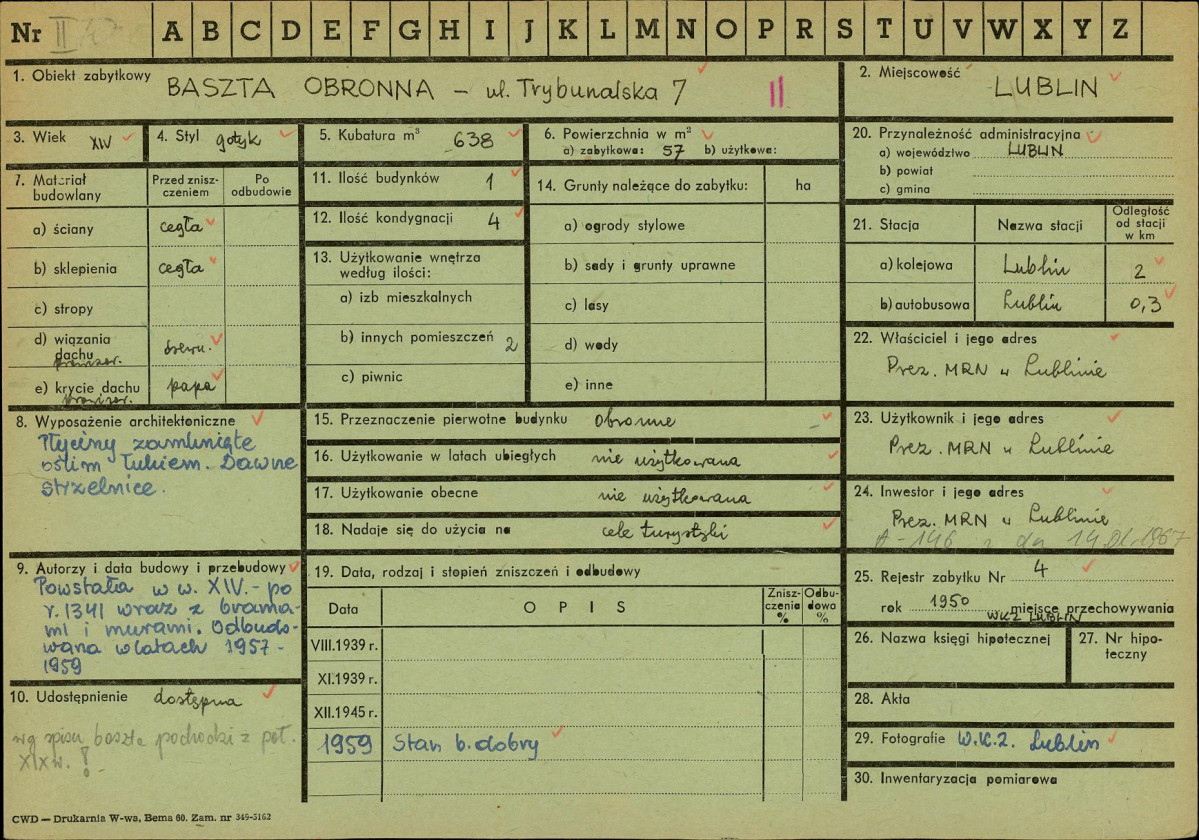 Nr II A B C D E F G H I J K L M N O P R S T U V W X Y Z
1. Obiekt zabytkowy BASZTA OBRONNA – ul. Trybunalska 7 II
2. Miejscowość LUBLIN
3. Wiek XIV
4. Styl gotyk
5. Kubatura m³ 638
6. Powierzchnia w m²
a) zabytkowa: 57 b) użytkowa:
7. Materiał budowlany
Przed zniszczeniem
Po odbudowie
a) ściany cegła
b) sklepienia cegła
c) stropy
d) wiązania dachu prowizor. drewn.
e) krycie dachu prowizor. papa
8. Wyposażenie architektoniczne
Płyciny zamknięte
ostrim łukiem. Dawne
strzelnice.
9. Autorzy i data budowy i przebudowy
Powstała w w. XIV. - po
r. 1341 wraz z brama-
mi i murami. Odbudo-
wana w latach 1957 -
1959
10. Udostępnienie dostępna
wg spisu baszta pochodzi z poł.
XIX w. !
11. Ilość budynków 1
12. Ilość kondygnacji 4
13. Użytkowanie wnętrza
według ilości:
a) izb mieszkalnych
b) innych pomieszczeń 2
c) piwnic
14. Grunty należące do zabytku: ha
a) ogrody stylowe
b) sady i grunty uprawne
c) lasy
d) wody
e) inne
15. Przeznaczenie pierwotne budynku obronne
16. Użytkowanie w latach ubiegłych nie użytkowana
17. Użytkowanie obecne nie użytkowana
18. Nadaje się do użycia na cele turystyki
19. Data, rodzaj i stopień zniszczeń i odbudowy
Data OPIS Zniszczenia % Odbudowa %
VIII.1939 r.
XI.1939 r.
XII.1945 r.
1959 Stan b. dobry
20. Przynależność administracyjna
a) województwo LUBLIN
b) powiat
c) gmina
21. Stacja Nazwa stacji Odległość od stacji w km
a) kolejowa Lublin 2
b) autobusowa Lublin 0,3
22. Właściciel i jego adres
Prez. MRN w Lublinie
23. Użytkownik i jego adres
Prez. MRN w Lublinie
24. Inwestor i jego adres
Prez. MRN w Lublinie
A-146 z dn 1967
25. Rejestr zabytku Nr 4
rok 1950 miejsce przechowywania
WKZ LUBLIN
26. Nazwa księgi hipotecznej
27. Nr hipoteczny
28. Akta
29. Fotografie W.K.Z. Lublin
30. Inwentaryzacja pomiarowa
CWD — Drukarnia W-wa, Bema 60. Zam. nr 349-5162